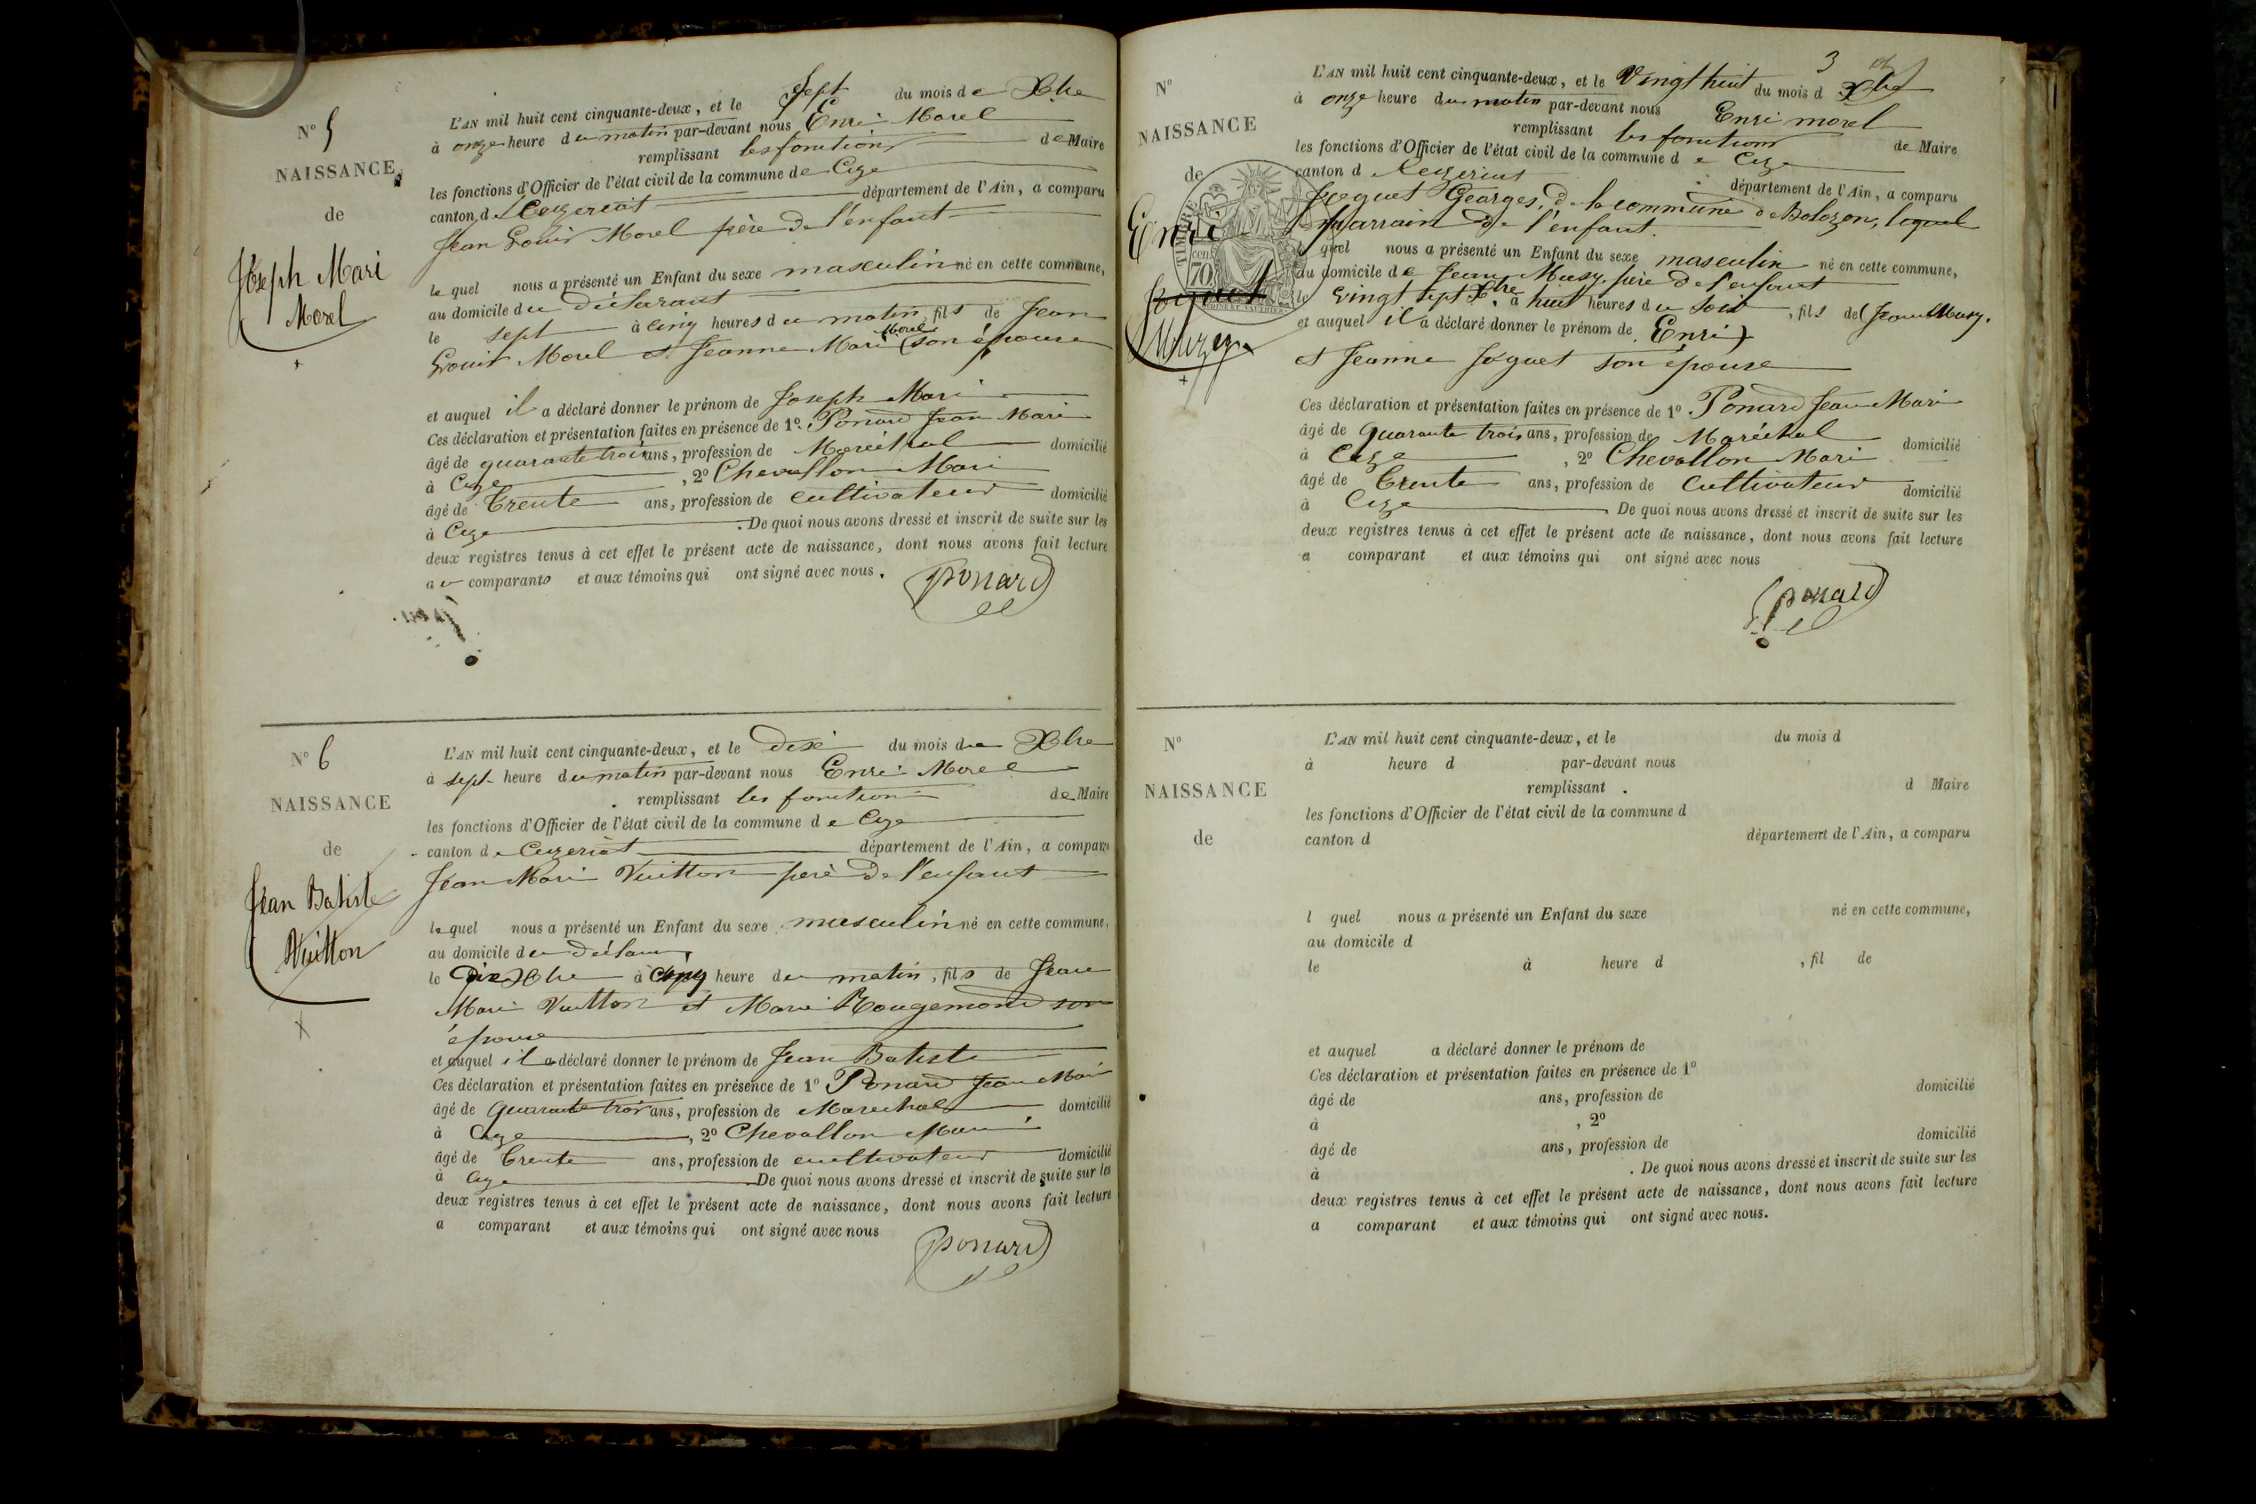 N° 5
NAISSANCE
de
Joseph Mari
Morel
L'AN mil huit cent cinquante-deux, et le sept du mois de Xbre
à onze heure du matin par-devant nous Enri Morel
remplissant les fonctions de Maire
les fonctions d'Officier de l'état civil de la commune de Cize
canton de Ceyzeriat département de l'Ain, a comparu
Jean Louis Morel père de l'enfant
lequel nous a présenté un Enfant du sexe masculin né en cette commune,
au domicile du déclarant
le sept à cinq heures du matin, fils de Jean
Morel
Louis Morel et Jeanne Mari son épouse
et auquel il a déclaré donner le prénom de Joseph Mari
Ces déclaration et présentation faites en présence de 1°. Ponard Jean Mari
âgé de quarante trois ans, profession de Maréchal domicilié
à Cize, 2° Chevallon Mari
âgé de Trente ans, profession de cultivateur domicilié
à Cize. De quoi nous avons dressé et inscrit de suite sur les
deux registres tenus à cet effet le présent acte de naissance, dont nous avons fait lecture
au comparants et aux témoins qui ont signé avec nous.
Ponard
N° 6
NAISSANCE
de
Jean Batiste
Vuitton
L'AN mil huit cent cinquante-deux, et le dix du mois de Xbre
à sept heure du matin par-devant nous Enri Morel
remplissant les fonctions de Maire
les fonctions d'Officier de l'état civil de la commune de Cize
canton de Ceyzeriat département de l'Ain, a comparu
Jean Mari Vuitton père de l'enfant
lequel nous a présenté un Enfant du sexe masculin né en cette commune,
au domicile du
le Dix Xbre à cinq heure du matin, fils de Jean
Mari Vuitton et Marie Rougemond son
épouse
et auquel il a déclaré donner le prénom de Jean Batiste
Ces déclaration et présentation faites en présence de 1° Ponard Jean Mari
âgé de quarante trois ans, profession de Marechal domicilié
à Cize, 2° Chevallon Mari
âgé de Trente ans, profession de cultivateur domicilié
à Cize De quoi nous avons dressé et inscrit de suite sur les
deux registres tenus à cet effet le présent acte de naissance, dont nous avons fait lecture
a comparant et aux témoins qui ont signé avec nous
Ponard
3
N°
NAISSANCE
de
Enri
Joguet
TIMBRE
70
L'AN mil huit cent cinquante-deux, et le Vingt huit du mois d Xbre
à onze heure du matin par-devant nous Enri morel
remplissant les fonctions de Maire
les fonctions d'Officier de l'état civil de la commune de Cize
canton d Ceyzeriat département de l'Ain, a comparu
Joguet Georges, de la commune de Bolozon, lequel
parrain de l'enfant.
l quel nous a présenté un Enfant du sexe masculin né en cette commune,
au domicile de Jean Muzy père de l'enfant
le Vingt sept Xbre. à huit heures du soir, fils de (Jean Muzy.
et auquel il a déclaré donner le prénom de Enri)
et Jeanne Joguet son épouse
Ces déclaration et présentation faites en présence de 1° Ponard Jean Mari
âgé de quarante trois ans, profession de Maréchal domicilié
à Cize, 2° Chevallon Mari
âgé de Trente ans, profession de Cultivateur domicilié
à Cize De quoi nous avons dressé et inscrit de suite sur les
deux registres tenus à cet effet le présent acte de naissance, dont nous avons fait lecture
a comparant et aux témoins qui ont signé avec nous
Ponard
N°
NAISSANCE
de
L'AN mil huit cent cinquante-deux, et le du mois d
à heure d par-devant nous
remplissant. d Maire
les fonctions d'Officier de l'état civil de la commune d
canton d département de l'Ain, a comparu
l quel nous a présenté un Enfant du sexe né en cette commune,
au domicile d
le à heure d, fil de
et auquel a déclaré donner le prénom de
Ces déclaration et présentation faites en présence de 1°
âgé de ans, profession de domicilié
à, 2°
âgé de ans, profession de domicilié
à. De quoi nous avons dressé et inscrit de suite sur les
deux registres tenus à cet effet le présent acte de naissance, dont nous avons fait lecture
a comparant et aux témoins qui ont signé avec nous.